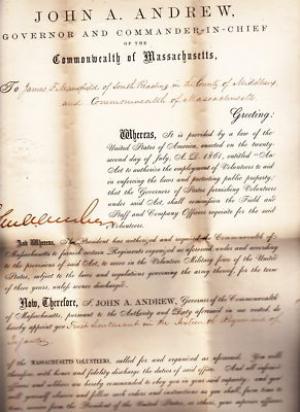 JOHN A. ANDREW,
GOVERNOR AND COMMANDER-IN-CHIEF
OF THE
Commonwealth of Massachusetts,
To James F. Mansfield of South Reading in the County of Middlesex
and Commonwealth of Massachusetts
Greeting:
Whereas, It is provided by a law of the
United States of America, enacted on the twenty-
second day of July, A. D. 1861, entitled "An
Act to authorize the employment of Volunteers to aid
in enforcing the laws and protecting public property,"
that the Governors of States furnishing Volunteers
under said Act, shall commission the Field and
Staff and Company Officers requisite for the said
Volunteers.
And Whereas, The President has authorized and required the Commonwealth of
Massachusetts to furnish certain Regiments organized as aforesaid, under and according
to the provisions of said Act, to serve in the Volunteer Military force of the United
States, subject to the laws and regulations governing the army thereof, for the term
of three years, unless sooner discharged.
Now, Therefore, I, JOHN A. ANDREW, Governor of the Commonwealth
of Massachusetts, pursuant to the Authority and Duty aforesaid in me vested, do
hereby appoint you First Lieutenant in the Sixteenth Regiment of
Infantry
of the MASSACHUSETTS VOLUNTEERS, called for and organized as aforesaid. You will
therefore with honor and fidelity discharge the duties of said office. And all inferior
officers and soldiers are hereby commanded to obey you in your said capacity, and you
will yourself observe and follow such orders and instructions as you shall from time to
time receive from the President of the United States, or others, your superior officers